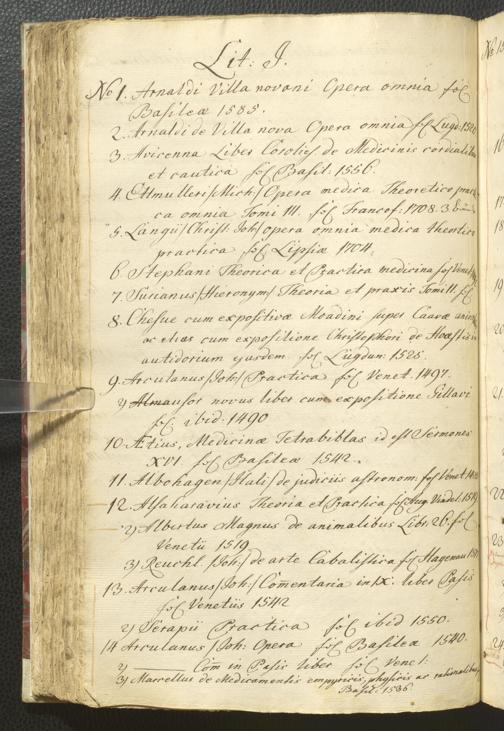 Lit: J.
No 1. Arnaldi Villa novani Opera omnia fol
Basileæ 1585.
2. Arnaldi de Villa nova Opera omnia fol Lugd:
3. Avicenna Liber de Medicinis cordialibus
et cautica fol Basil: 1556.
4. Ettmulleri /Mich/ Opera medica Theoretico prac
ca omnia Tomi III. fol Francof: 1708. 3
5. Langii /Christ. Joh/ opera omnia medica theoretico
practica fol Lipsiæ 1704.
6. Stephani Theorica et Practica medicina fol Venet
7. Surianus /Hieronym/ Theoria et praxis Tomi II. fol
8. cum expositiva super
ac cum expositione Christophori de
antidorium ejusdem fol Lugdun: 1525.
9. Arculanus /Joh/ Practica fol Venet. 1497.
2) Almansor novus liber cum expositione Sillani
fol ibid: 1490
10. Ætius, Medicinæ Tetrabiblas id est Sermones
XVI fol Basileæ 1542.
11. Albohagen /Hali/ de judiciis astronom: fol Venet
12. Alsaharavius Theoria et Practica fol Aug Vindel: 1519
2) Albertus Magnus de animalibus Libr. 26. fol
Venetii 1519
3) Reuchl. /Joh/ de arte Cabalistica fol Hagenau
13. Arculanus /Joh/ Comentaria in IX. liber Rasis
fol Venetiis 1542
2) Serapii Practica fol ibid 1550.
14 Arculanus /Joh: Opera fol Basileæ 1540.
2) Com in Rasis liber fol Venet:
3) Marcellus de Medicamentis empyricis, physicis ac rationalibus,
Basil: 1536